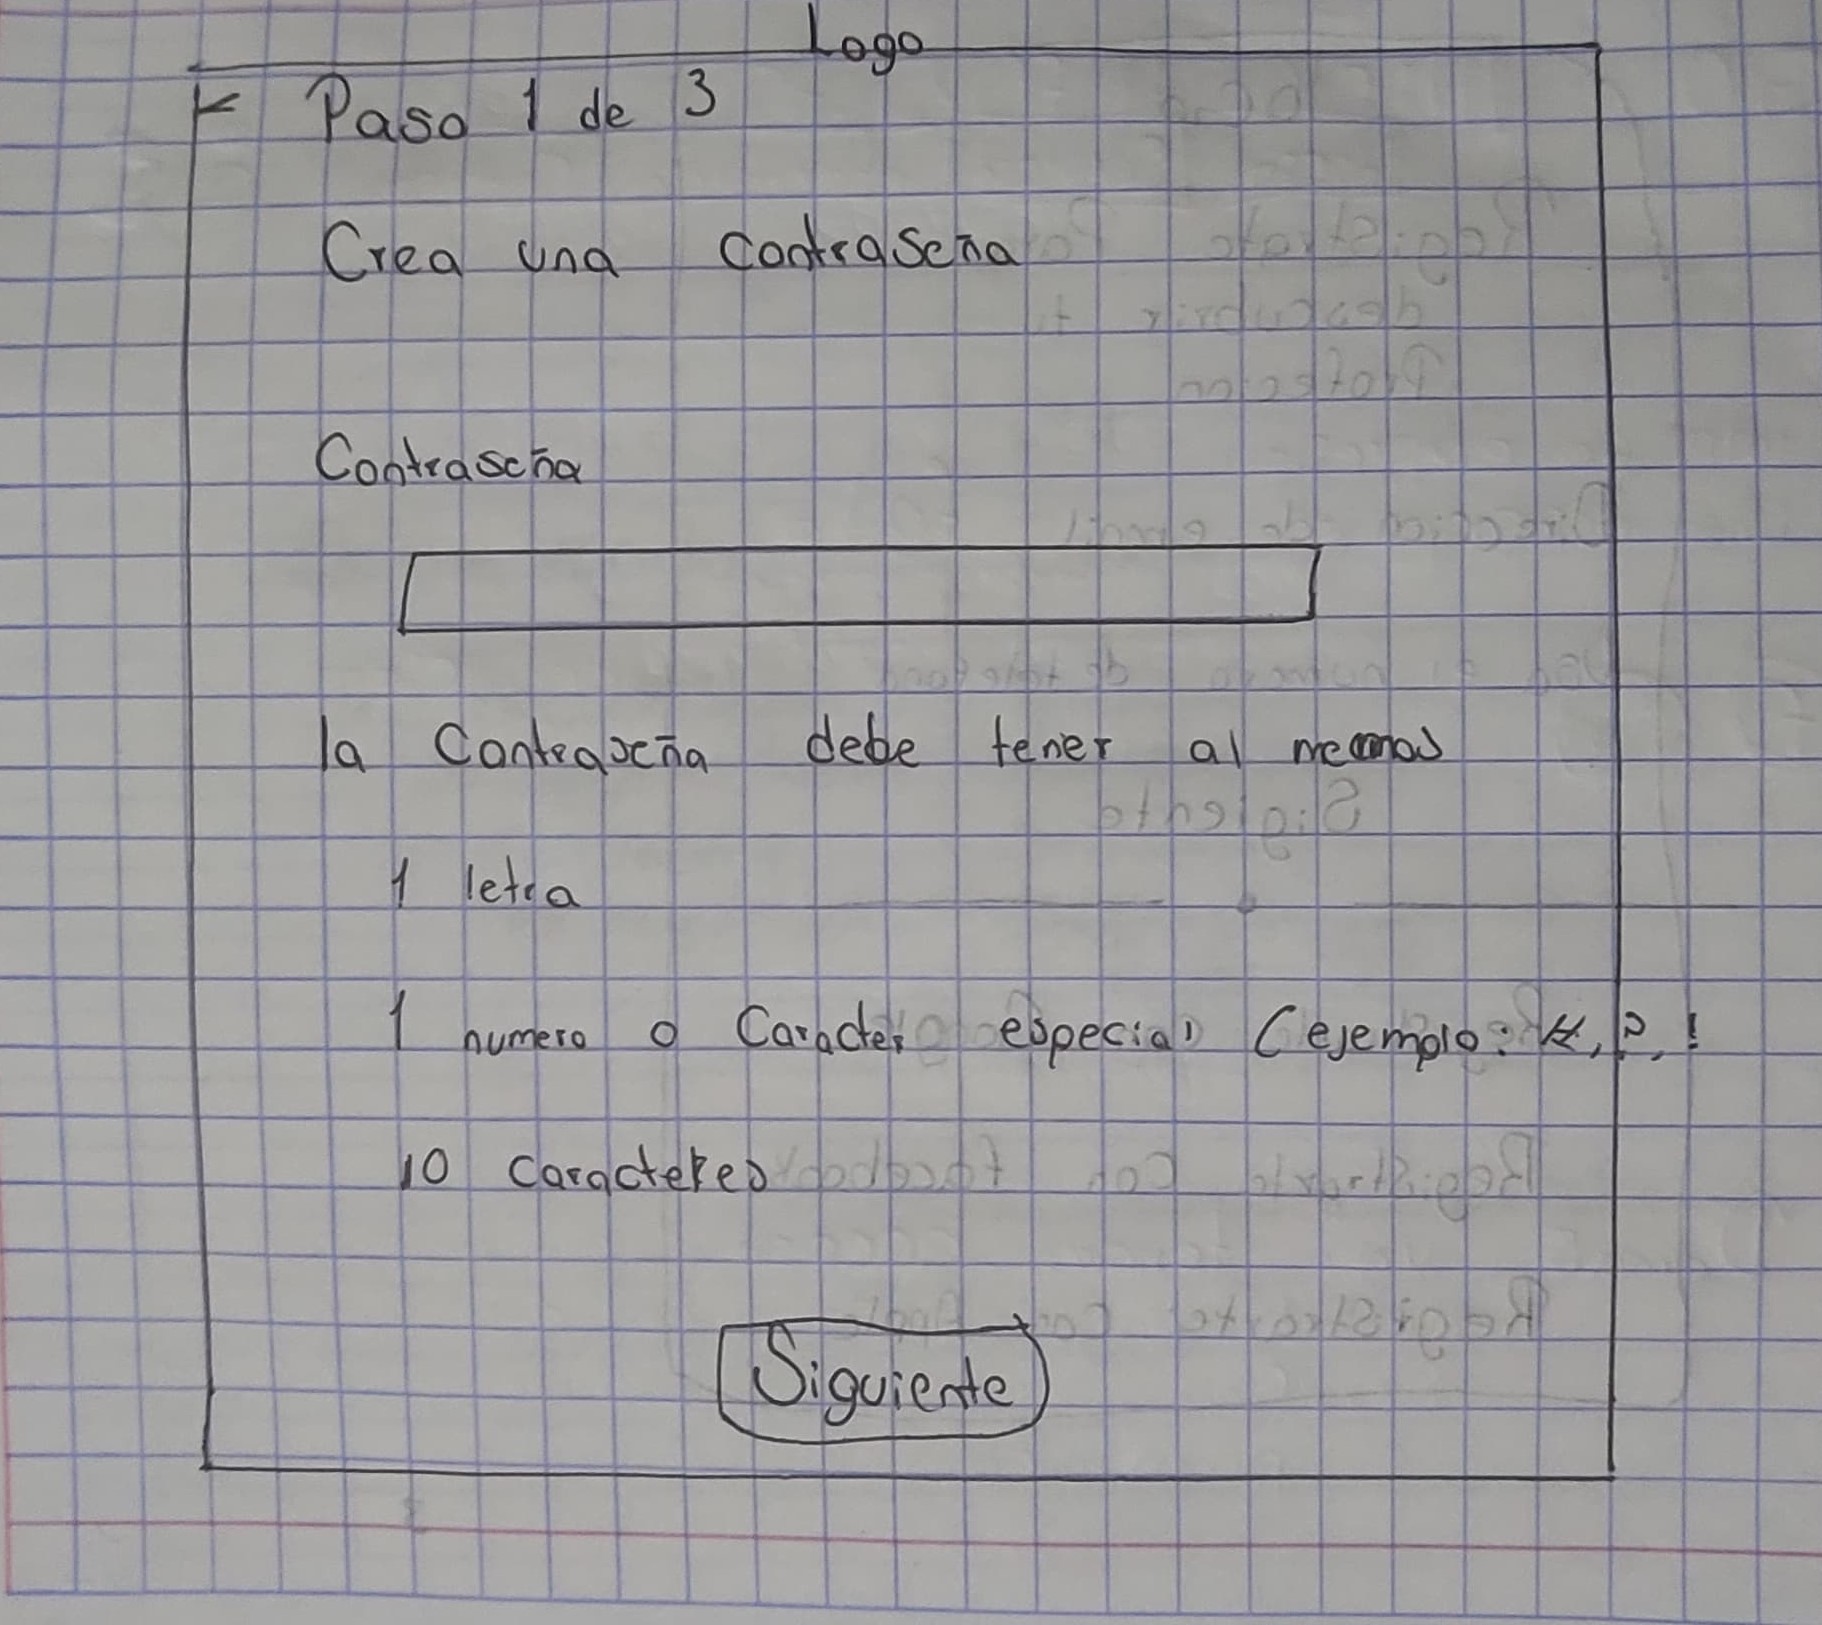 Logo
Paso 1 de 3
Crea una contraseña
Contraseña
la Contraseña debe tener al menos
1 letra
1 numero o Caracter especial (ejemplo: #, ?, !
10 caracteres
Siguiente